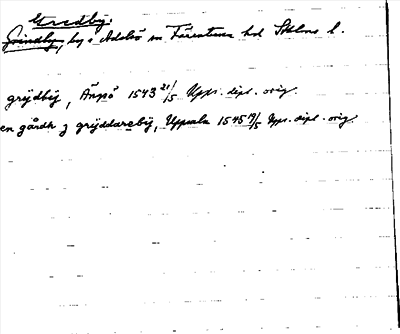 Gredby.
Grindby, by i Adelsö sn Färentuna hd Sthlms l.
grijdbij, Ängsö 1543 21/5 Upps. dipl. orig
en gårdh j grijddarebij, Uppsala 1545 19/5 Upps. dipl. orig.